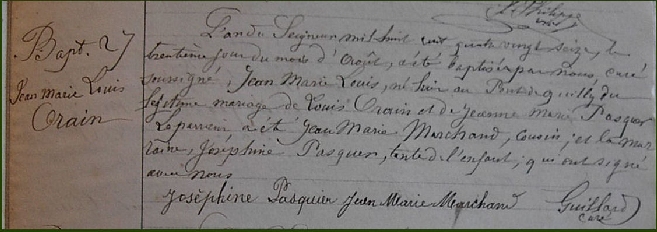 Bapt. 27
Jean Marie Louis
Orain
L'an du Seigneur mil huit cent quatre vingt seize, le
trentième jour du mois d'Août, a été baptisé par nous, curé
soussigné, Jean Marie Louis, né hier au du
légitime mariage de Louis Orain et de Jeanne Marie Pasquer
Le parrain a été Jean Marie Marchand, cousin; et la mar
raine, Joséphine Pasquer, tante de l'enfant; qui ont signé
avec nous
Joséphine Pasquier Jean Marie Marchand Guillard
Curé